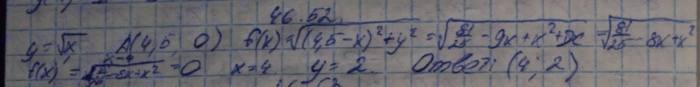 46.52.
y=√x, A(4,5; 0) f(x)=√((4,5-x)²+y²) =√(81/25 -9x+x²+x) =√(81/25 -8x+x²)
f(x)' = (x-4)/√(81/25 -8x+x²) =0 x=4 y=2. Ответ: (4; 2)